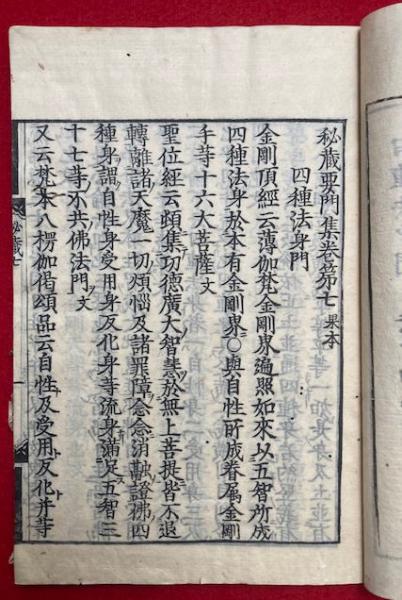 秘蔵要門集卷第七 杲本
四種法身門
金剛頂經云薄伽梵金剛界遍照如來以五智所成
四種法身於本有金剛界〇與自性所成眷属金剛
手等十六大菩薩文
聖位經云頓集功德廣大智慧於無上菩提皆不退
轉離諸天魔一切煩惱及諸罪障念念消融證佛四
種身謂自性身受用身反化身等流身滿足五智三
十七等不共佛法門文
又云梵本八楞伽偈頌品云自性及受用反化并等
秘蔵七